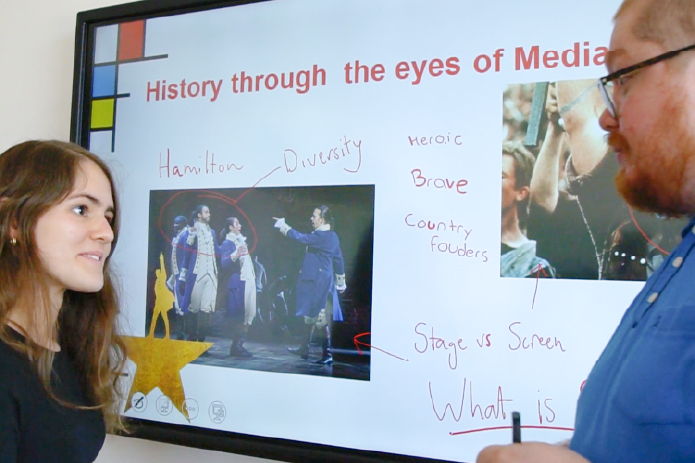 History through the eyes of Media
Hamilton
Diversity
Heroic
Brave
Country
fouders
Stage vs Screen
What is